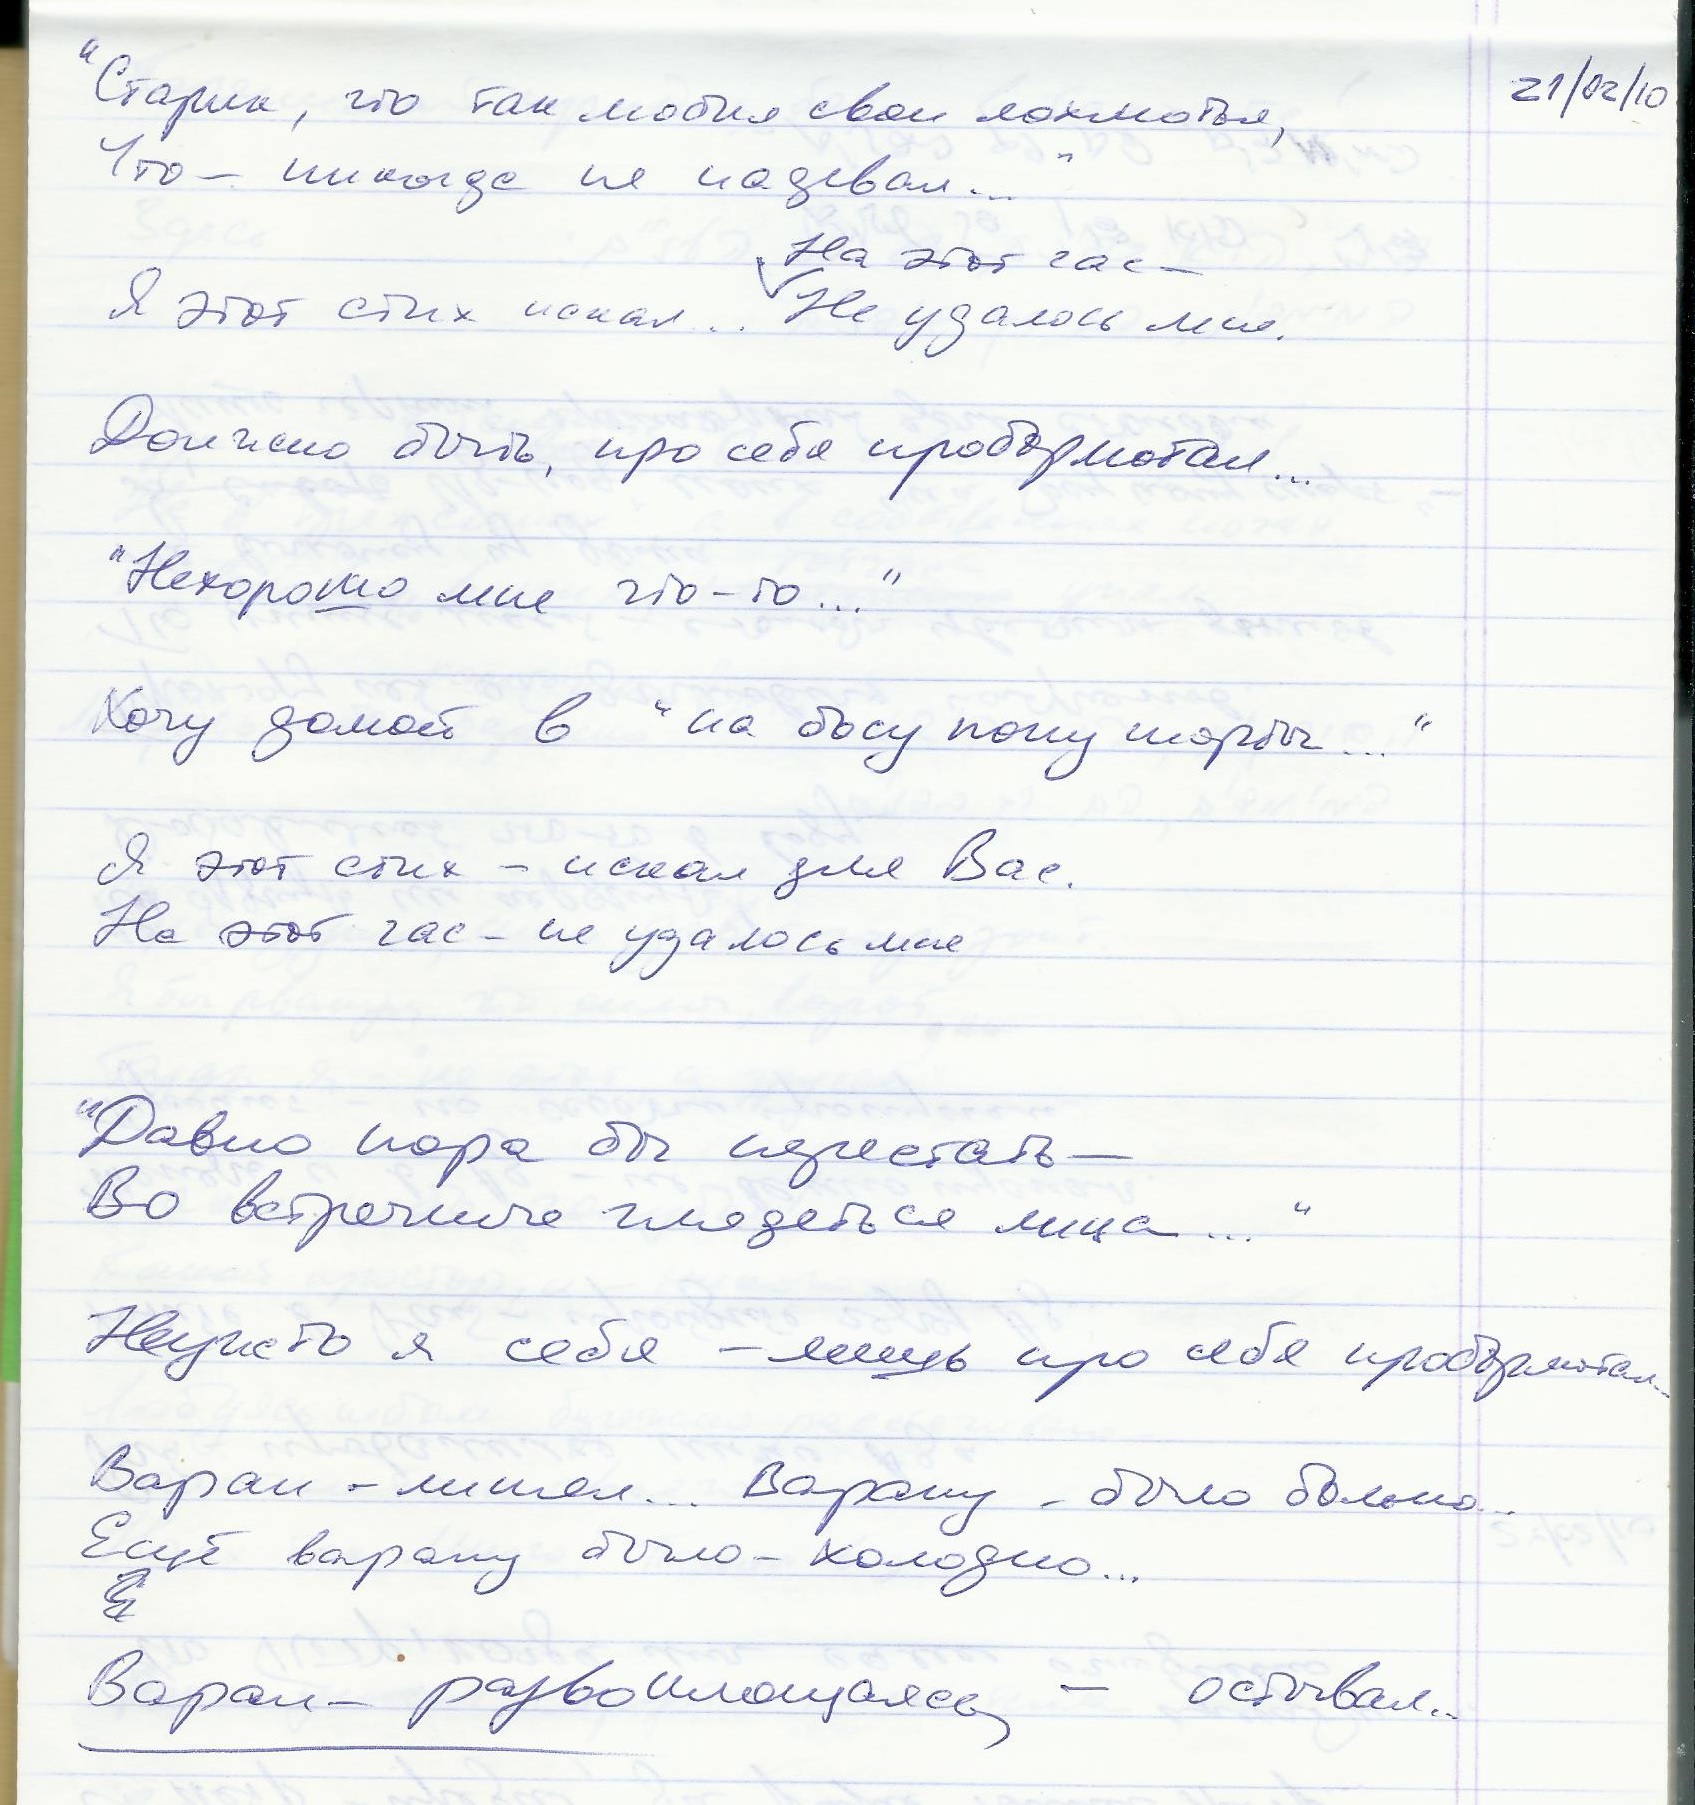 21/02/10
"Старик, что так любил свои лохмотья,
Что – никогда не надевал..."
На этот час –
Я этот стих искал... Не удалось мне.
Должно быть, про себя пробормотал...
"Нехорошо мне что-то..."
Хочу домой в "на босу попу шорты..."
Я этот стих – искал для Вас.
На этот час – не удалось мне
"Давно пора бы перестать –
Во встречные глядеться лица..."
Неужто я себя – лишь про себя пробормотал...
Варан – линял... Варану – было больно...
Ещё варану было – холодно...
Варан – развоплощаясь, – остывал...